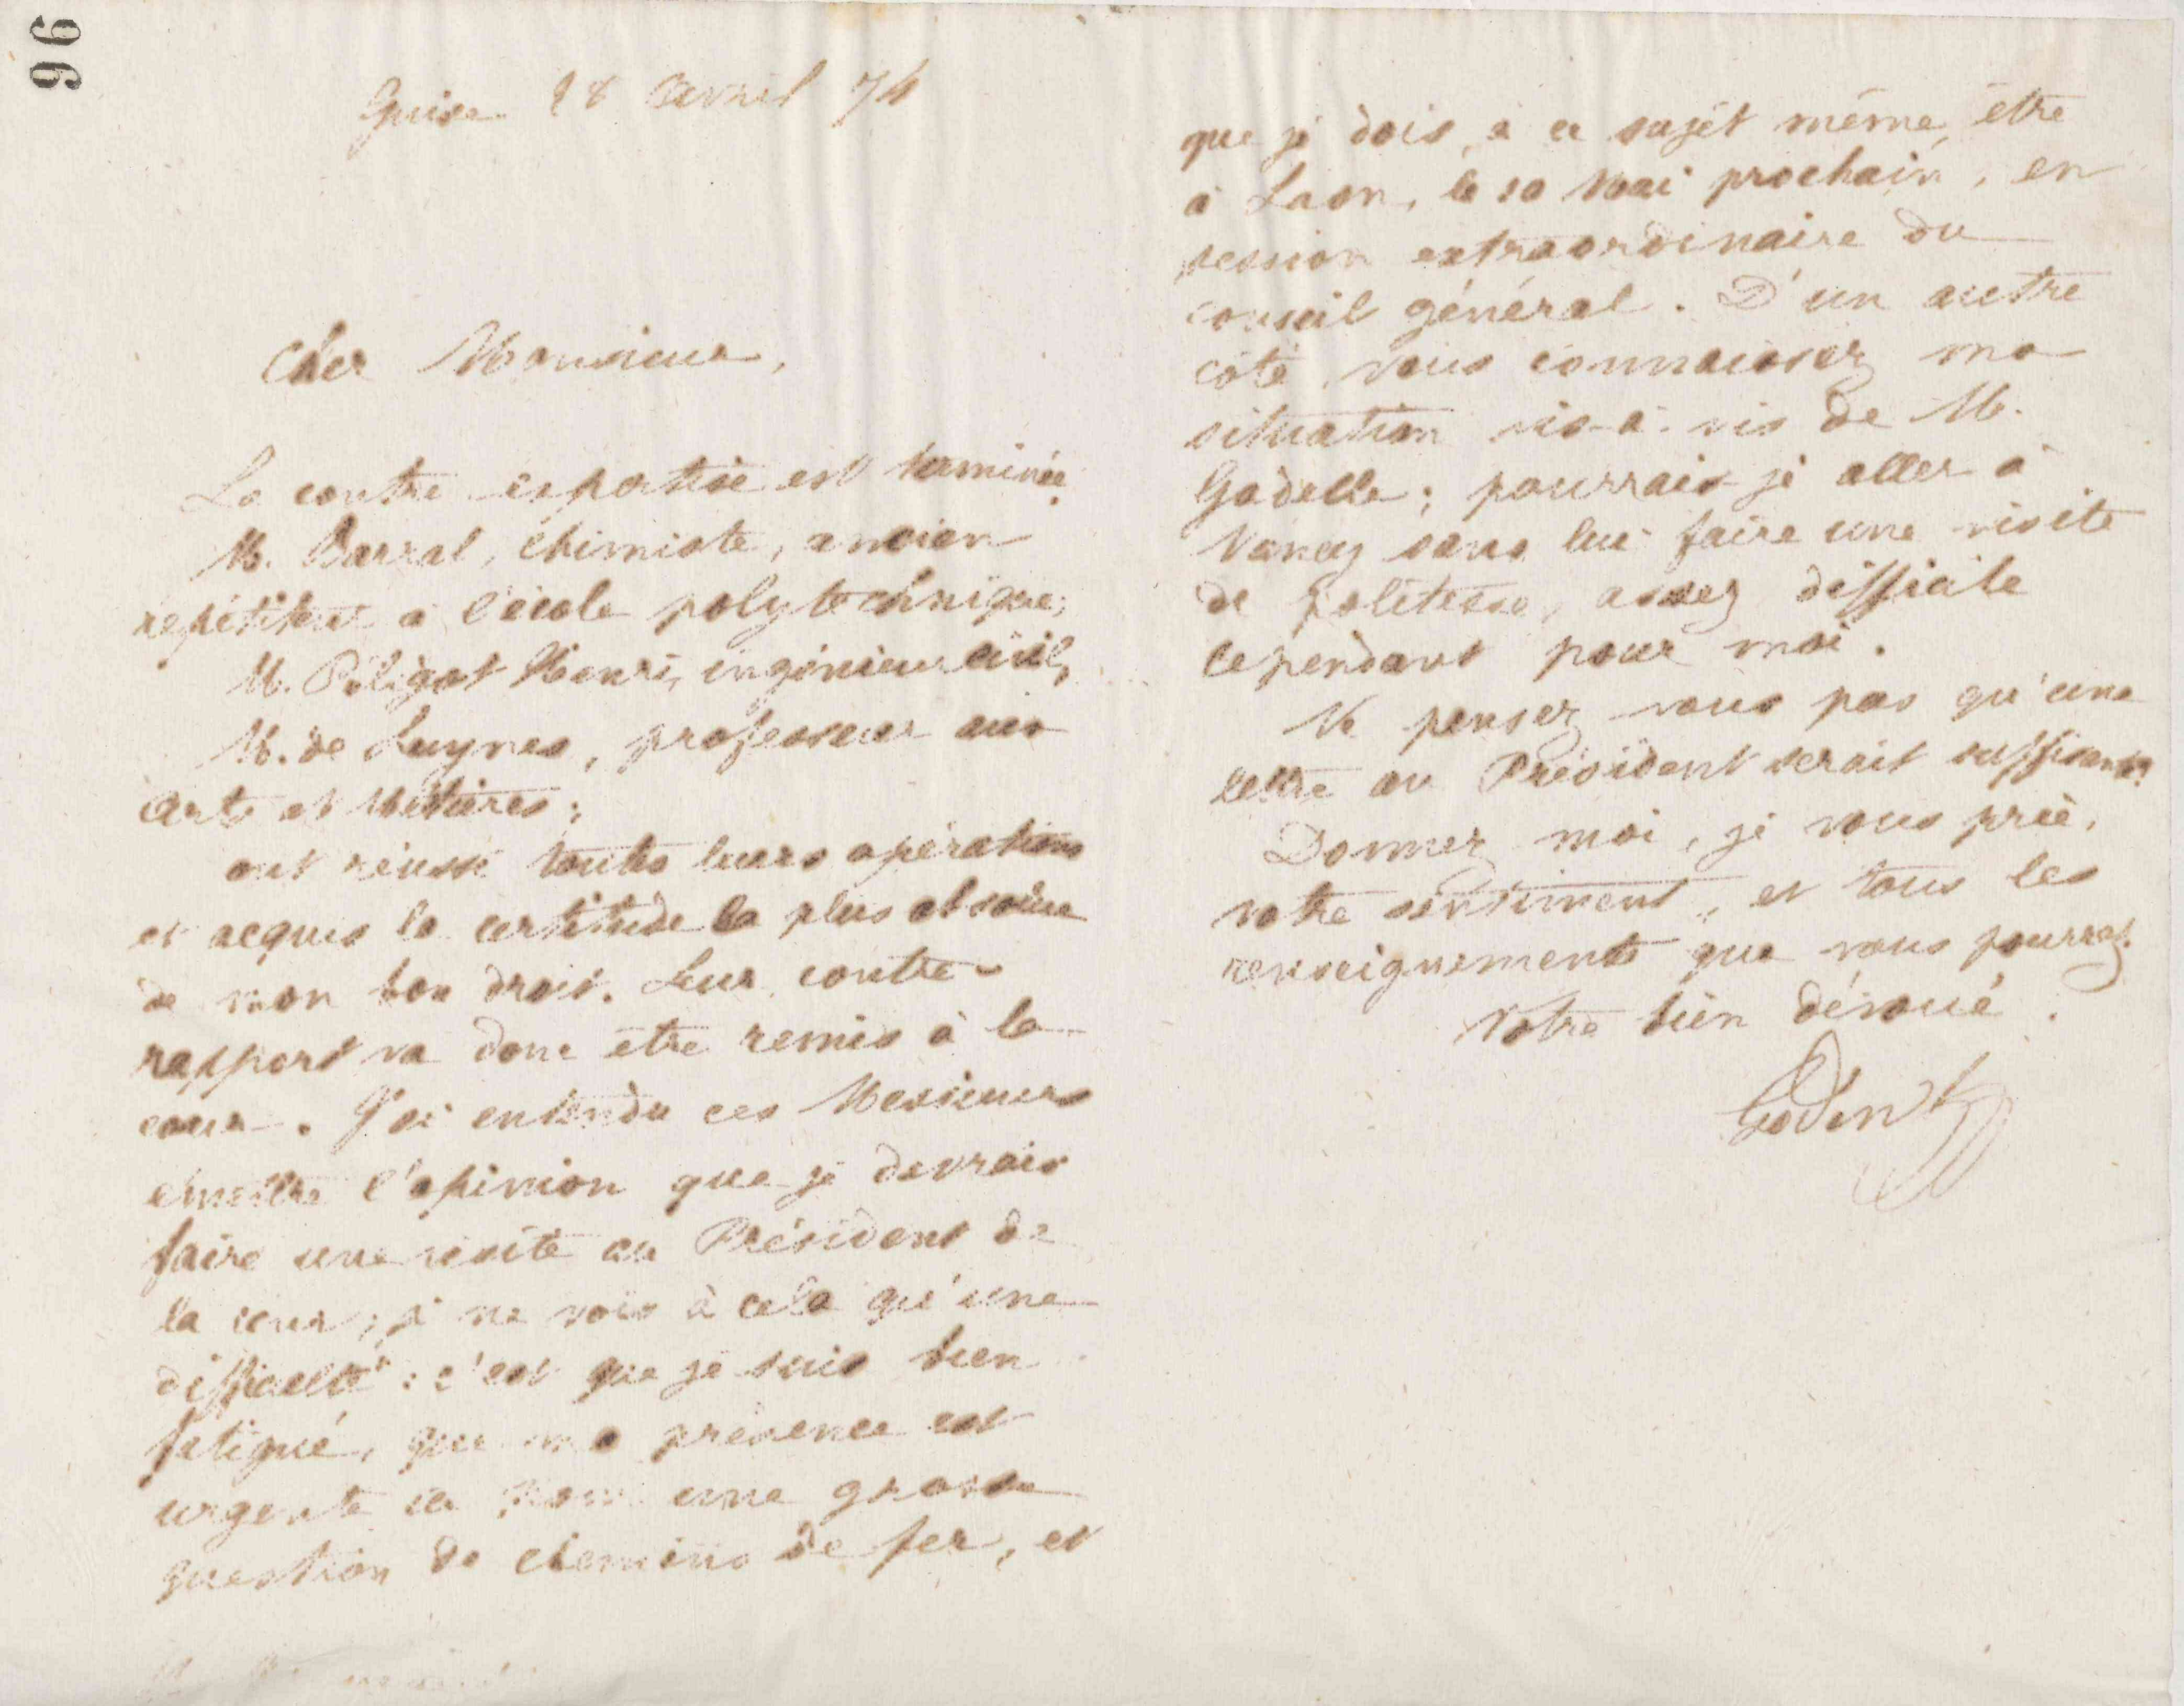 96
Guise 28 avril 74
Cher Monsieur,
La contre expertise est terminée.
M. Barral, chimiste, ancien
répétiteur à l'école polytechnique;
M. Péligot Henri, ingénieur civil,
M. de Luynes, professeur aux
arts et Métiers;
ont réussi toutes leurs opérations
et acquis la certitude la plus absolue
de mon bon droit. Leur contre-
rapport va donc être remis à la
cour. J'ai entendu ces Messieurs
émettre l'opinion que je devrais
faire une visite au Président de
la cour; je ne vois à cela qu'une
difficulté: c'est que je suis bien
fatigué, que ma présence est
urgente ici pour une grosse
question de chemins de fer, et
que je dois, à ce sujet même, être
à Laon, le 10 Mai prochain, en
session extraordinaire du
conseil général. D'un autre
côté, vous connaissez ma
situation vis-à-vis de M.
Godelle; pourrais-je aller à
Nancy sans lui faire une visite
de politesse, assez difficile
cependant pour moi.
Ne pensez vous pas qu'une
lettre au Président serait suffisante?
Donnez moi, je vous prie,
votre sentiment, et tous les
renseignements que vous pourrez.
Votre bien dévoué.
Godin